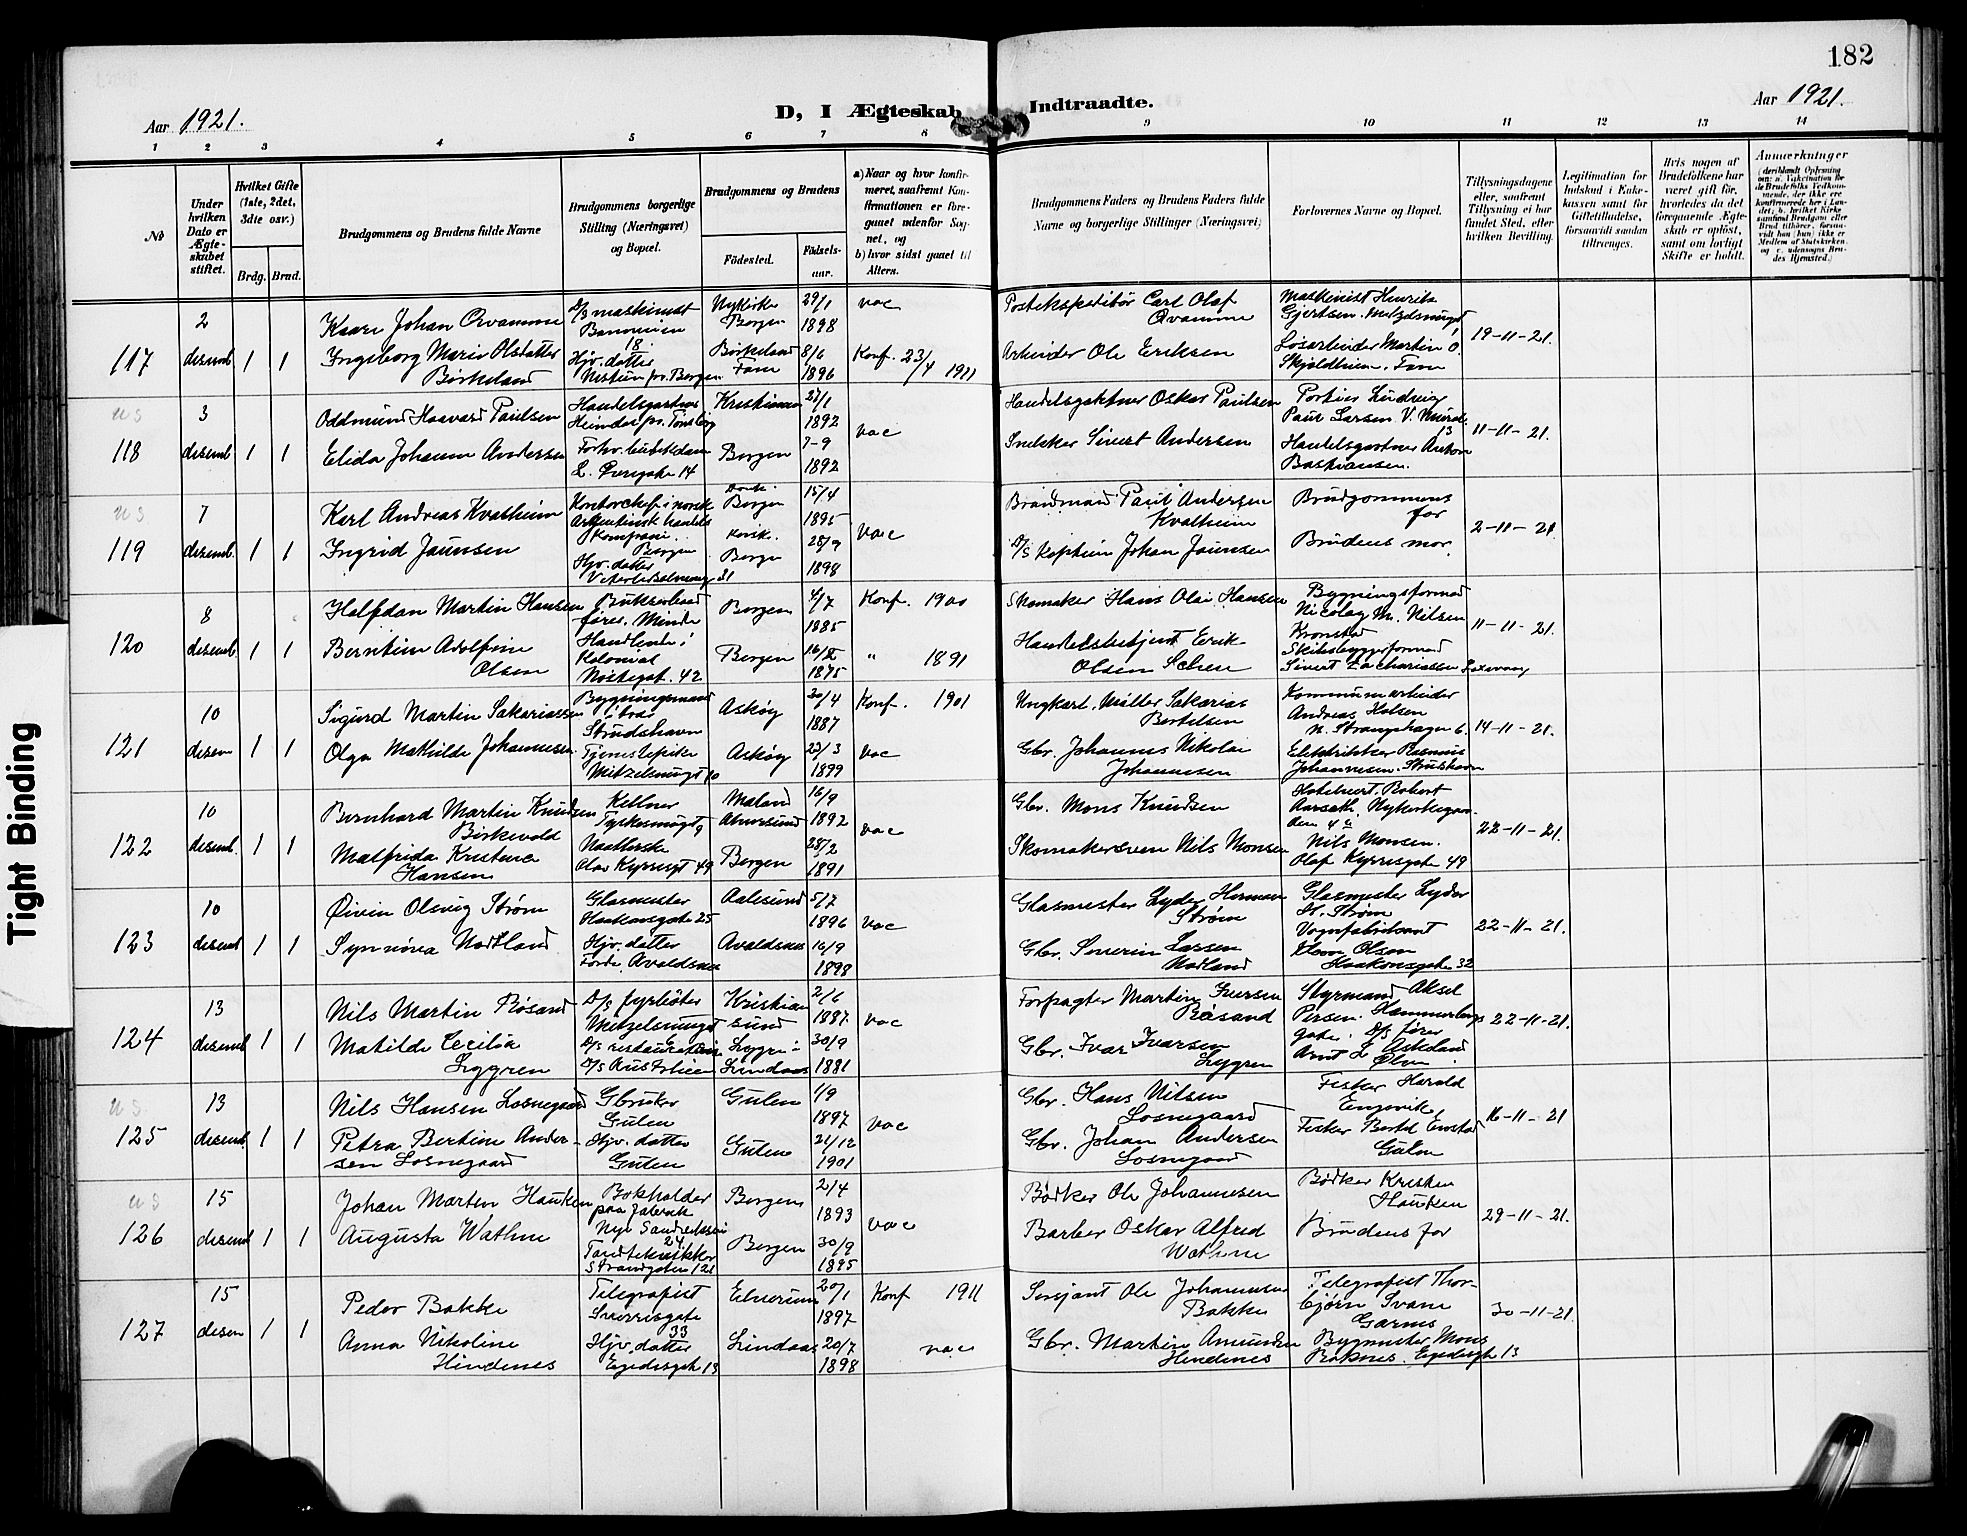 182
Aar 1921.
D, I Ægteskab Indtraadte.
Aar 1921.
1 2 3 4 5 6 7 8 9 10 11 12 13 14
No
Under hvilken Dato er Ægteskabet stiftet.
Hvilket Gifte (1ste, 2det, 3dte osv.)
Brdg. Brud.
Brudgommens og Brudens fulde Navne
Brudgommens borgerlige Stilling (Næringsvei) og Bopæl.
Brudgommens og Brudens
Födested.
Födselsaar.
a) Naar og hvor konfirmeret, saafremt Konfirmationen er foregaaet udenfor Sognet, og
b) hvor sidst gaaet til Alters.
Brudgommens Faders og Brudens Faders fulde Navne og borgerlige Stillinger (Næringsvei)
Forlovernes Navne og Bopæl.
Tillysningsdagene eller, saafremt Tillysning ei har fundet Sted, efter hvilken Bevilling.
Legitimation for Indskud i Enkekassen samt for Giftetilladelse, forsaavidt saadan tiltrænges.
Hvis nogen af Brudefolkene har været gift før, hvorledes da det foregaaende Ægteskab er oplöst, samt om lovligt Skifte er holdt.
Anmerkninger
117
2 desemb
1 1
Kaare Johan Qvamme
Ingeborg Marie Olsdatter
Birkeland
D/S maskinist
18
Hjv. datter
Nykirke
Bergen
Birkeland
Fane
29/1
1898
8/6
1896
vac
Konf. 23/4 1911
Postekspeditør Carl Olaf
Qvamme
Arbeider Ole Eriksen
Maskinist Henrik
Gjertsen. Mitzelsmugt
Løsarbeider Martin O.
Skjoldheim. Fane
19-11-21.
118
us
3 desemb
1 1
Oddmund Haavard Paulsen
Elida Johanne Andersen
Handelsgartner
Heimdal pr. Tønsberg
L. Øvregate 14
Kristiania
Bergen
27/1
1892
7-9
1892
vac
Handelsgartner Oskar Paulsen
Snekker Sivert Andersen
Portier Ludvig
Paul Larsen V. Mural.
13
Handelsgartner Anton
Bastiansen.
11-11-21.
119
us
7 desemb.
1 1
Karl Andreas Kvalheim
Ingrid Jaunsen
Kontorchef i norsk
Argentinsk handels
Kompani.
Bergen
Hjv. datter
31
Domk.
Bergen
Korsk.
Bergen
15/4
1895
25/9
1898
vac
Brandmand Paul Andersen
Kvalheim
D/S Kaptein Johan Jaunsen
Brudgommens
far
Brudens mor
2-11-21.
120
8 desemb
1 1
Halfdan Martin Hansen
Berntine Adolfine
Olsen
Minde
Handlende i
Kolonial
Nøstegat. 42
Bergen
Bergen
4/7
1885
16/X
1875
Konf. 1900
" 1891
Skomaker Hans Olai Hansen
Handelsbetjent Erik
Olsen Schen
Bygningsformand
Nicolay M. Nilsen
Kronstad
Skibsbyggerformand
Sivert Zachariassen Laxevaag
11-11-21.
121
10 desem
1 1
Sigurd Martin Sakariassen
Olga Mathilde Johannesen
Bygningsmand
Strudshavn
Tjenestepike
Mitzelsmugt 10
Askøy
Askøy
30/4
1887
22/3
1899
Konf. 1901
vac
Ungkarl. Møller Sakarias
Bertelsen
Gbr. Johannes Nikolai
Johannesen
Kommunearbeider
Andreas Halsen
N. Strangehagen 6.
Elektriker Rasmus
Johannesen. Strushavn
14-11-21.
122
10 desemb.
1 1
Bernhard Martin Knudsen
Birkevold
Malfrida Kristine
Hansen
Kellner
Tyskesmugt 9
Olav Kyrresgt 49
Bergen
16/9
1892
28/2
1891
vac
Gbr. Mons Knudsen
Skomakersven Nils Monsen
Hotelvert. Robert
Nils Monsen.
Olaf Kyrresgate 49
22-11-21.
123
10 desemb
1 1
Øivin Olsvig Strøm
Synnøva Nodland
Glasmester
Haakonsgate 25
Hjv. datter
Førde. Avaldsnes
Aalesund
Avaldsnes
5/7
1896
16/9
1898
vac
Glasmester Lyder Herman
Strøm
Gbr. Severin Larsen
Nodland
Glasmester Lyder
H. Strøm
Vognfabrikant
Olsen
Haakonsgate 32
22-11-21.
124
13 desemb
1 1
Nils Martin Røsand
Matilde Cecilia
Lygren
D/S fyrbøter
Mitzelsmugt
6
Kristian
sund
Lygre i
Lindaas
2/6
1887.
30/9
1881
vac
Forpagter Martin Iversen
Røsand
Gbr. Ivar Ivarsen
Lygren
Styrmand Aksel
Persen. Kammerbergs
gate. D/S fører
Arnt L. Askeland
Ølve.
22-11-21.
125
us
13 desemb
1 1
Nils Hansen Losnegaard
Petra Bertine Ander-
sen Losnegaard
Gbruker
Gulen
Hjv. datter
Gulen
Gulen
Gulen
1/9
1897
21/12
1901
vac
Gbr. Hans Nilsen
Losnegaard
Gbr. Johan Andersen
Losnegaard
Fisker Harald
Engevik
Fisker Bertel
Gulen
16-11-21
126
us
15 desemb
1 1
Johan Martin Hauken
Augusta Wathne
Bokholder
paa fabrik
24
Tandtekniker
Strandgaten 121
Bergen
Bergen
2/4
1893
30/9
1895
vac
Bødker Ole Johannesen
Barber Oskar Alfred
Wathne
Bødker Kristen
Hauken
Brudens far
29-11-21.
127
15 desem
1 1
Peder Bakke
Anna Nikoline
Hindenes
Telegrafist
Sverresgate
33
Hjv. datter
Egedesgate 13
Elverum
Lindaas
20/1
1897
20/7
1898
Konf 1911
vac
Sersjant Ole Johannesen
Bakke
Gbr. Martin Amundsen
Hindenes
Telegrafist Thor-
bjørn Svane
Garnes
Bygmester Mons
Boknes. Egedesgt 13
30-11-21.
Tight Binding